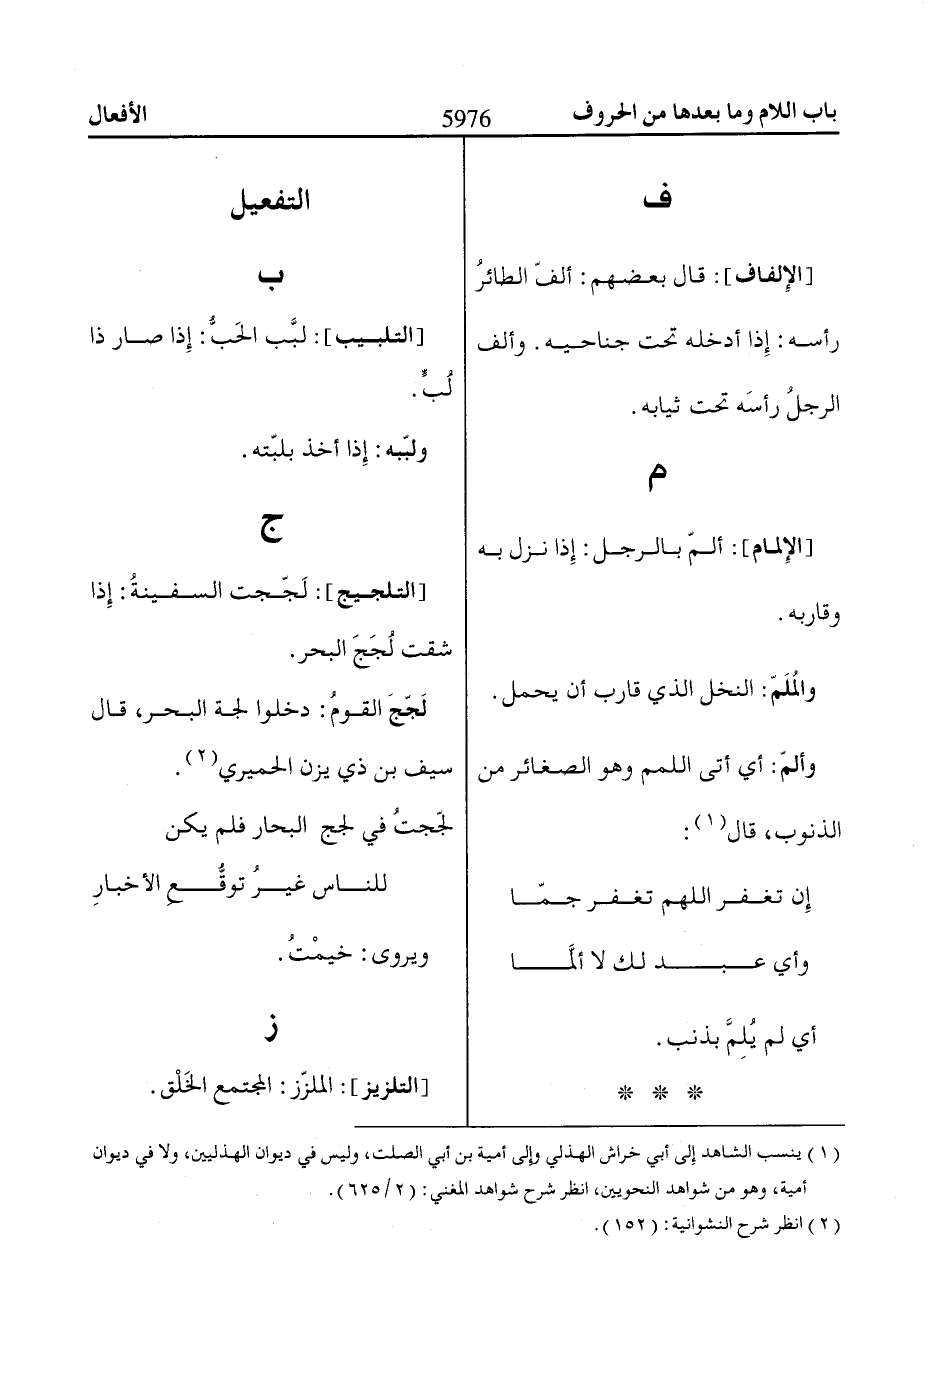 باب اللام وما بعدها من الحروف 5976 الأفعال
ف
[الإِلفاف]: قال بعضهم: ألفّ الطائرُ
رأسه: إِذا أدخله تحت جناحيه. وألف
الرجلُ رأسَه تحت ثيابه.
م
[الإِلمام]: ألمّ بالرجل: إِذا نزل به
وقاربه.
والمُلَمّ: النخل الذي قارب أن يحمل.
وألمّ: أي أتى اللمم وهو الصغائر من
الذنوب، قال(١):
إِن تغفر اللهم تغفر جمّا
وأي عبد لك لا ألمَّا
أي لم يُلِمَّ بذنب.
* * *
التفعيل
ب
[التلبيب]: لبَّب الحَبُّ: إِذا صار ذا
لُبٍّ.
ولبّبه: إِذا أخذ بلبّته.
ج
[التلجيج]: لَجّجت السفينةُ: إِذا
شقت لُجَجَ البحر.
لَجّجَ القومُ: دخلوا لجة البحر، قال
سيف بن ذي يزن الحميري(٢).
لجّجتُ في لجج البحار فلم يكن
للناس غيرُ توقُّعِ الأخبارِ
ويروى: خيمْتُ.
ز
[التلزيز]: الملزّز: المجتمع الخَلْق.
(١) ينسب الشاهد إلى أبي خراش الهذلي وإلى أمية بن أبي الصلت، وليس في ديوان الهذليين، ولا في ديوان
أمية، وهو من شواهد النحويين، انظر شرح شواهد المغني: (٢/ ٦٢٥).
(٢) انظر شرح النشوانية: (١٥٢).